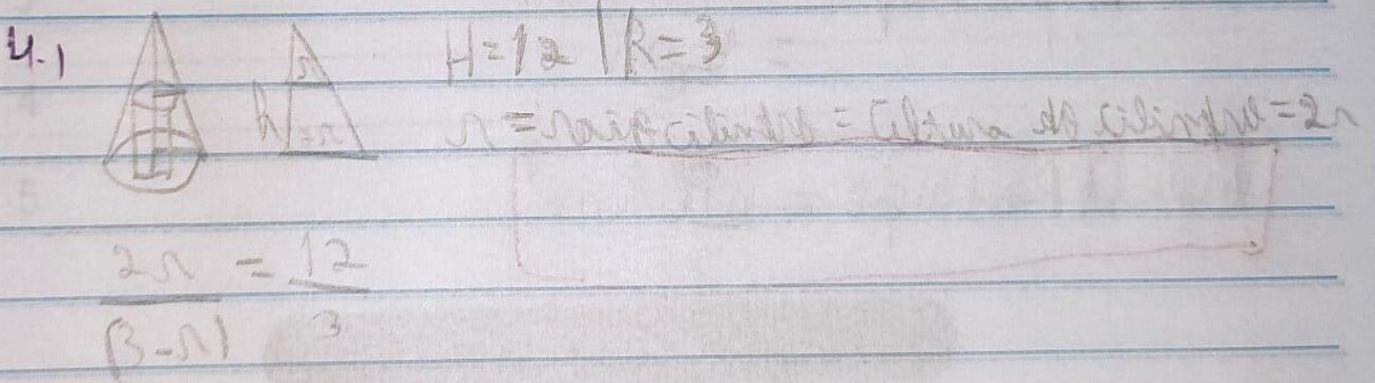 4.1
H=12 | R=3
r = raio cilindro = altura do cilindro = 2r
h
r
2r = 12
(3-r) 3